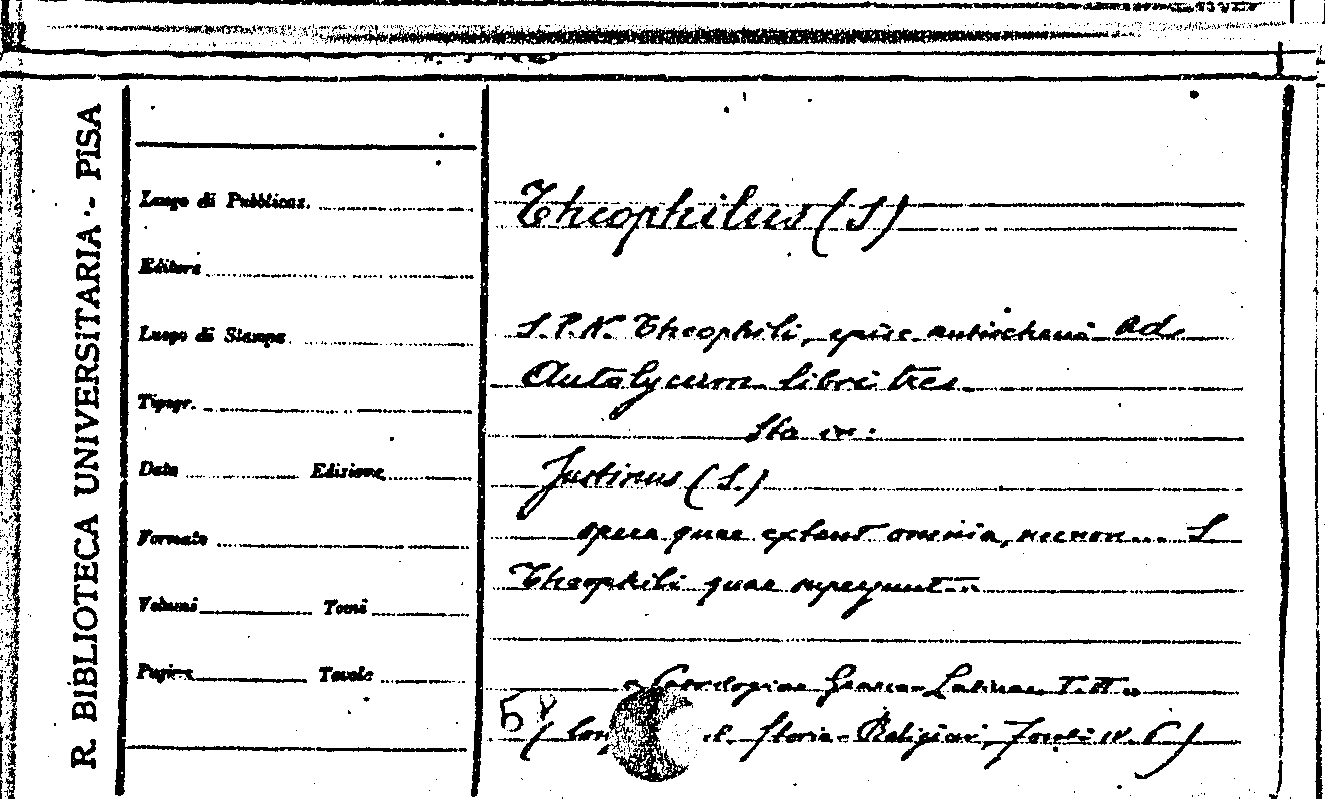 R. BIBLIOTECA UNIVERSITARIA - PISA
Luogo di Pubblicaz.
Editore
Luogo di Stampa
Tipogr.
Data Edizione
Formato
Volumi Tomi
Pagine Tavole
Theophilus (S)
S. P. N. Theophili, antiocheni ad
Autolycum libri tres
Sta in:
Justinus (S.)
opera quae extant omnia, necnon... S
Theophili quae supersunt...
Graeca-Latinae
58
Storia-Religiosi, Fonti n. 6)